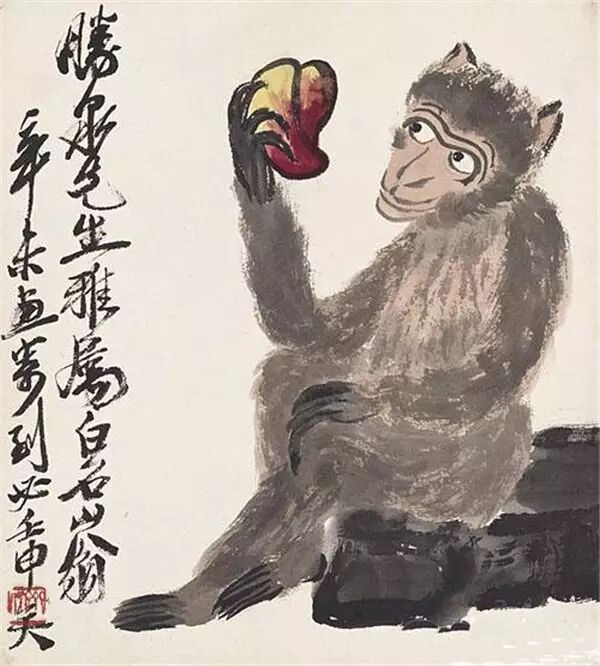 勝泉先生雅屬白石山翁
辛未畫寄到必壬申矣